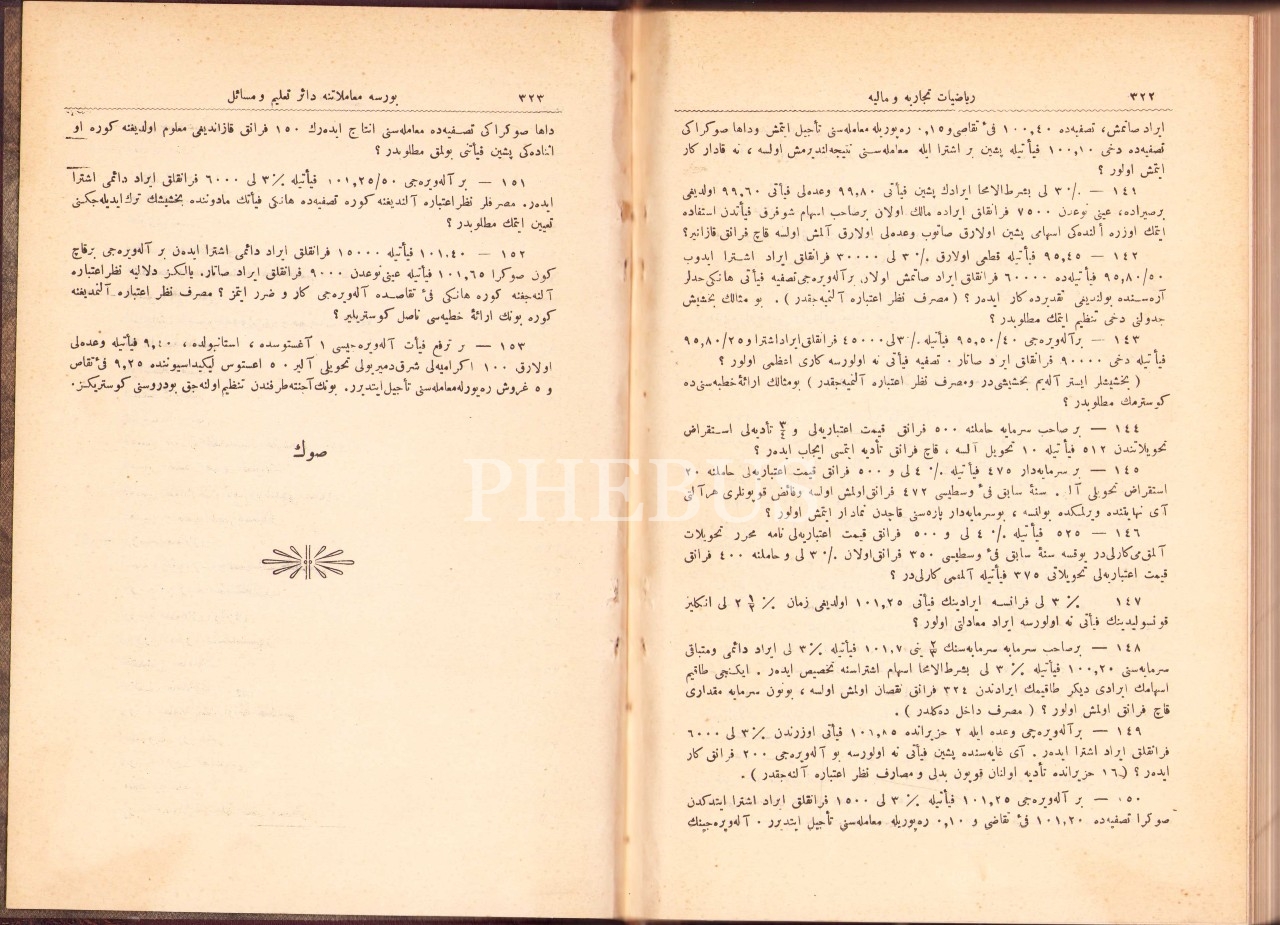 ٣٢٢
رياضيات تجاريه و ماليه
ايراد صاتمش، تصفيه‌ده ١٠٠,٤٠ فئ تقاصى و ٠,١٥ ره‌پورىله معامله‌سنى تأجيل ايتمش وداها صوكراكى
تصفيه‌ده دخى ١٠٠,١٠ فيأتيله پشين بر اشترا ايله معامله‌سنى نتيجه‌لنديرمش اولسه ، نه قادار كار
ايتمش اولور ؟
١٤١ — ٪ ٣ لى بشرط‌الامحا ايرادك پشين فيأتى ٩٩,٨٠ وعده‌لى فيأتى ٩٩,٦٠ اولديغى
برصيراده، عينى نوعدن ٧٥٠٠ فرانقلق ايراده مالك اولان برصاحب اسهام شوفرق فيأتدن استفاده
ايتمك اوزره ألنده‌كى اسهامى پشين اولارق صاتوب وعده‌لى اولارق آلمش اولسه قاچ فرانق قازانير؟
١٤٢ — ٩٥,٤٥ فيأتيله قطعى اولارق ٪ ٣ لى ٣٠٠٠٠ فرانقلق ايراد اشترا ايدوب
٩٥,٨٠/٥٠ فيأتيله‌ده ٦٠٠٠٠ فرانقلق ايراد صاتمش اولان بر آله‌ويره‌جى تصفيه فيأتى هانكى حدلر
آره‌سنده بولنديغى تقديرده كار ايدر ؟ ( مصرف نظر اعتباره آلنميه‌جقدر ) . بو مثالك بخشيش
جدولنى دخى تنظيم ايتمك مطلوبدر ؟
١٤٣ — برآله‌ويره‌جى ٩٥,٥٠/٤٠ فيأتيله ٪ ٣ لى ٤٥٠٠٠ فرانقلق ايراد اشترا و ٩٥,٨٠/٢٥
فيأتيله دخى ٩٠٠٠٠ فرانقلق ايراد صاتار . تصفيه فيأتى نه اولورسه كارى اعظمى اولور ؟
( بخشيشلر ايستر آله‌يم بخشيشى‌در ومصرف نظر اعتباره آلنميه‌جقدر ) بومثالك ارائۀ خطيه‌سنى‌ده
كوسترمك مطلوبدر ؟
١٤٤ — بر صاحب سرمايه حاملنه ٥٠٠ فرانق قيمت اعتباريه‌لى و تأديه‌لى استقراض
تحويلاتندن ٥١٢ فيأتيله ١٠ تحويل آلسه ، قاچ فرانق تأديه ايتمسى ايجاب ايدر ؟
١٤٥ — بر سرمايه‌دار ٤٧٥ فيأتيله ٪ ٤ لى و ٥٠٠ فرانق قيمت اعتباريه‌لى حاملنه ٢٠
استقراض تحويلى آلير . سنۀ سابق فئ وسطيسى ٤٧٢ فرانق اولمش اولسه وفائض قوپونلرى هرآلتى
آى نهايتنده ويرلمكده بولنسه ، بوسرمايه‌دار پاره‌سنى قاچدن نمادار ايتمش اولور ؟
١٤٦ — ٥٢٥ فيأتيله ٪ ٤ لى و ٥٠٠ فرانق قيمت اعتباريه‌لى نامه محرر تحويلات
آلمق‌مى‌كارلى‌در يوقسه سنۀ سابق فئ وسطيسى ٣٥٠ فرانق اولان ٪ ٣ لى و حاملنه ٤٠٠ فرانق
قيمت اعتباريه‌لى تحويلاتى ٣٧٥ فيأتيله آلمق‌مى كارلى‌در ؟
١٤٧ ٪ ٣ لى فرانسه ايرادينك فيأتى ١٠١,٢٥ اولديغى زمان ٪ ٢ لى انكليز
قونسوليدينك فيأتى نه اولورسه ايراد معادلتى اولور ؟
١٤٨ — برصاحب سرمايه سرمايه‌سنك ينى ١٠١,٧ فيأتيله ٪ ٣ لى ايراد دائمى ومتباقى
سرمايه‌سنى ١٠٠,٢٠ فيأتيله ٪ ٣ لى بشرط‌الامحا اسهام اشتراسنه تخصيص ايدر . ايكنجى طاقيم
اسهامك ايرادى ديكر طاقيمك ايرادندن ٣٢٤ فرانق نقصان اولمش اولسه ، بوتون سرمايه مقدارى
قاچ فرانق اولمش اولور ؟ ( مصرف داخل ده‌كلدر ) .
١٤٩ — برآله‌ويره‌جى وعده ايله ٢ حزيرانده ١٠١,٨٥ فيأتى اوزرندن ٪ ٣ لى ٦٠٠٠
فرانقلق ايراد اشترا ايدر . آى غايه‌سنده پشين فيأتى نه اولورسه بو آله‌ويره‌جى ٢٠٠ فرانق كار
ايدر ؟ ( ١٦ حزيرانده تأديه اولنان قوپون بدلى و مصارف نظر اعتباره آلنه‌جقدر ) .
١٥٠ — بر آله‌ويره‌جى ١٠١,٢٥ فيأتيله ٪ ٣ لى ١٥٠٠ فرانقلق ايراد اشترا ايتدكدن
صوكرا تصفيه‌ده ١٠١,٢٠ فئ تقاضى و ٠,١٠ ره‌پوريله معامله‌سنى تأجيل ايتديرر . آله‌ويره‌جينك
٣٢٣
بورسه معاملاتنه دائر تعليم و مسائل
داها صوكراكى تصفيه‌ده معامله‌سنى انتاج ايده‌رك ١٥٠ فرانق قازانديغى معلوم اولديغنه كوره او
اثناده‌كى پشين فيأتنى بولمق مطلوبدر ؟
١٥١ — بر آله‌ويره‌جى ١٠١,٢٥/٥٠ فيأتيله ٪ ٣ لى ٦٠٠٠ فرانقلق ايراد دائمى اشترا
ايدر. مصرفلر نظر اعتباره آلنديغنه كوره تصفيه‌ده هانكى فيأتك مادوننده بخشيشك ترك‌ايديله‌جكنى
تعيين ايتمك مطلوبدر ؟
١٥٢ — ١٠١,٤٠ فيأتيله ١٥٠٠٠ فرانقلق ايراد دائمى اشترا ايدن بر آله‌ويره‌جى برقاچ
كون صوكرا ١٠١,٦٥ فيأتيله عينى‌نوعدن ٩٠٠٠ فرانقلق ايراد صاتار. يالكز دلاليه نظر اعتباره
آلنه‌جغنه كوره هانكى فئ تقاصده آله‌ويره‌جى كار و ضرر ايتمز ؟ مصرف نظر اعتباره آلنمديغنه
كوره بونك ارائۀ خطيه‌سى ناصل كوستريلير ؟
١٥٣ — بر ترفع فيأت آله‌ويره‌جيسى ١ آغستوسده ، استانبولده ، ٩,٤٠ فيأتيله وعده‌لى
اولارق ١٠٠ اكراميه‌لى شرق‌دميريولى تحويلى آلير . ٥ اغستوس ليكيداسيوننده ٩,٢٥ فئ تقاص
و ٥ غروش ره‌پورله معامله‌سنى تأجيل ايتديرر. بونك آجنته طرفندن تنظيم اولنه‌جق بودروسنى كوستريكز.
صوك
PHEBUS